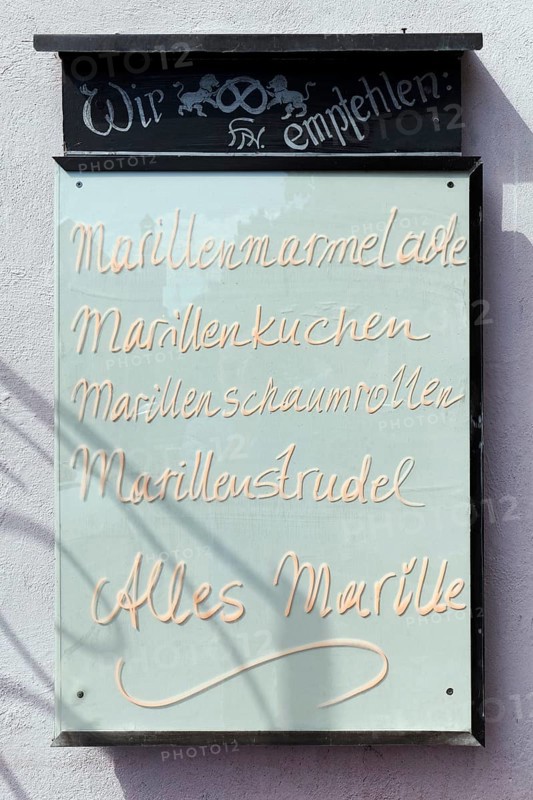 Wir empfehlen:
Marillenmarmelade
Marillenkuchen
Marillenschaumrollen
Marillenstrudel
Alles Marille
PHOTO12